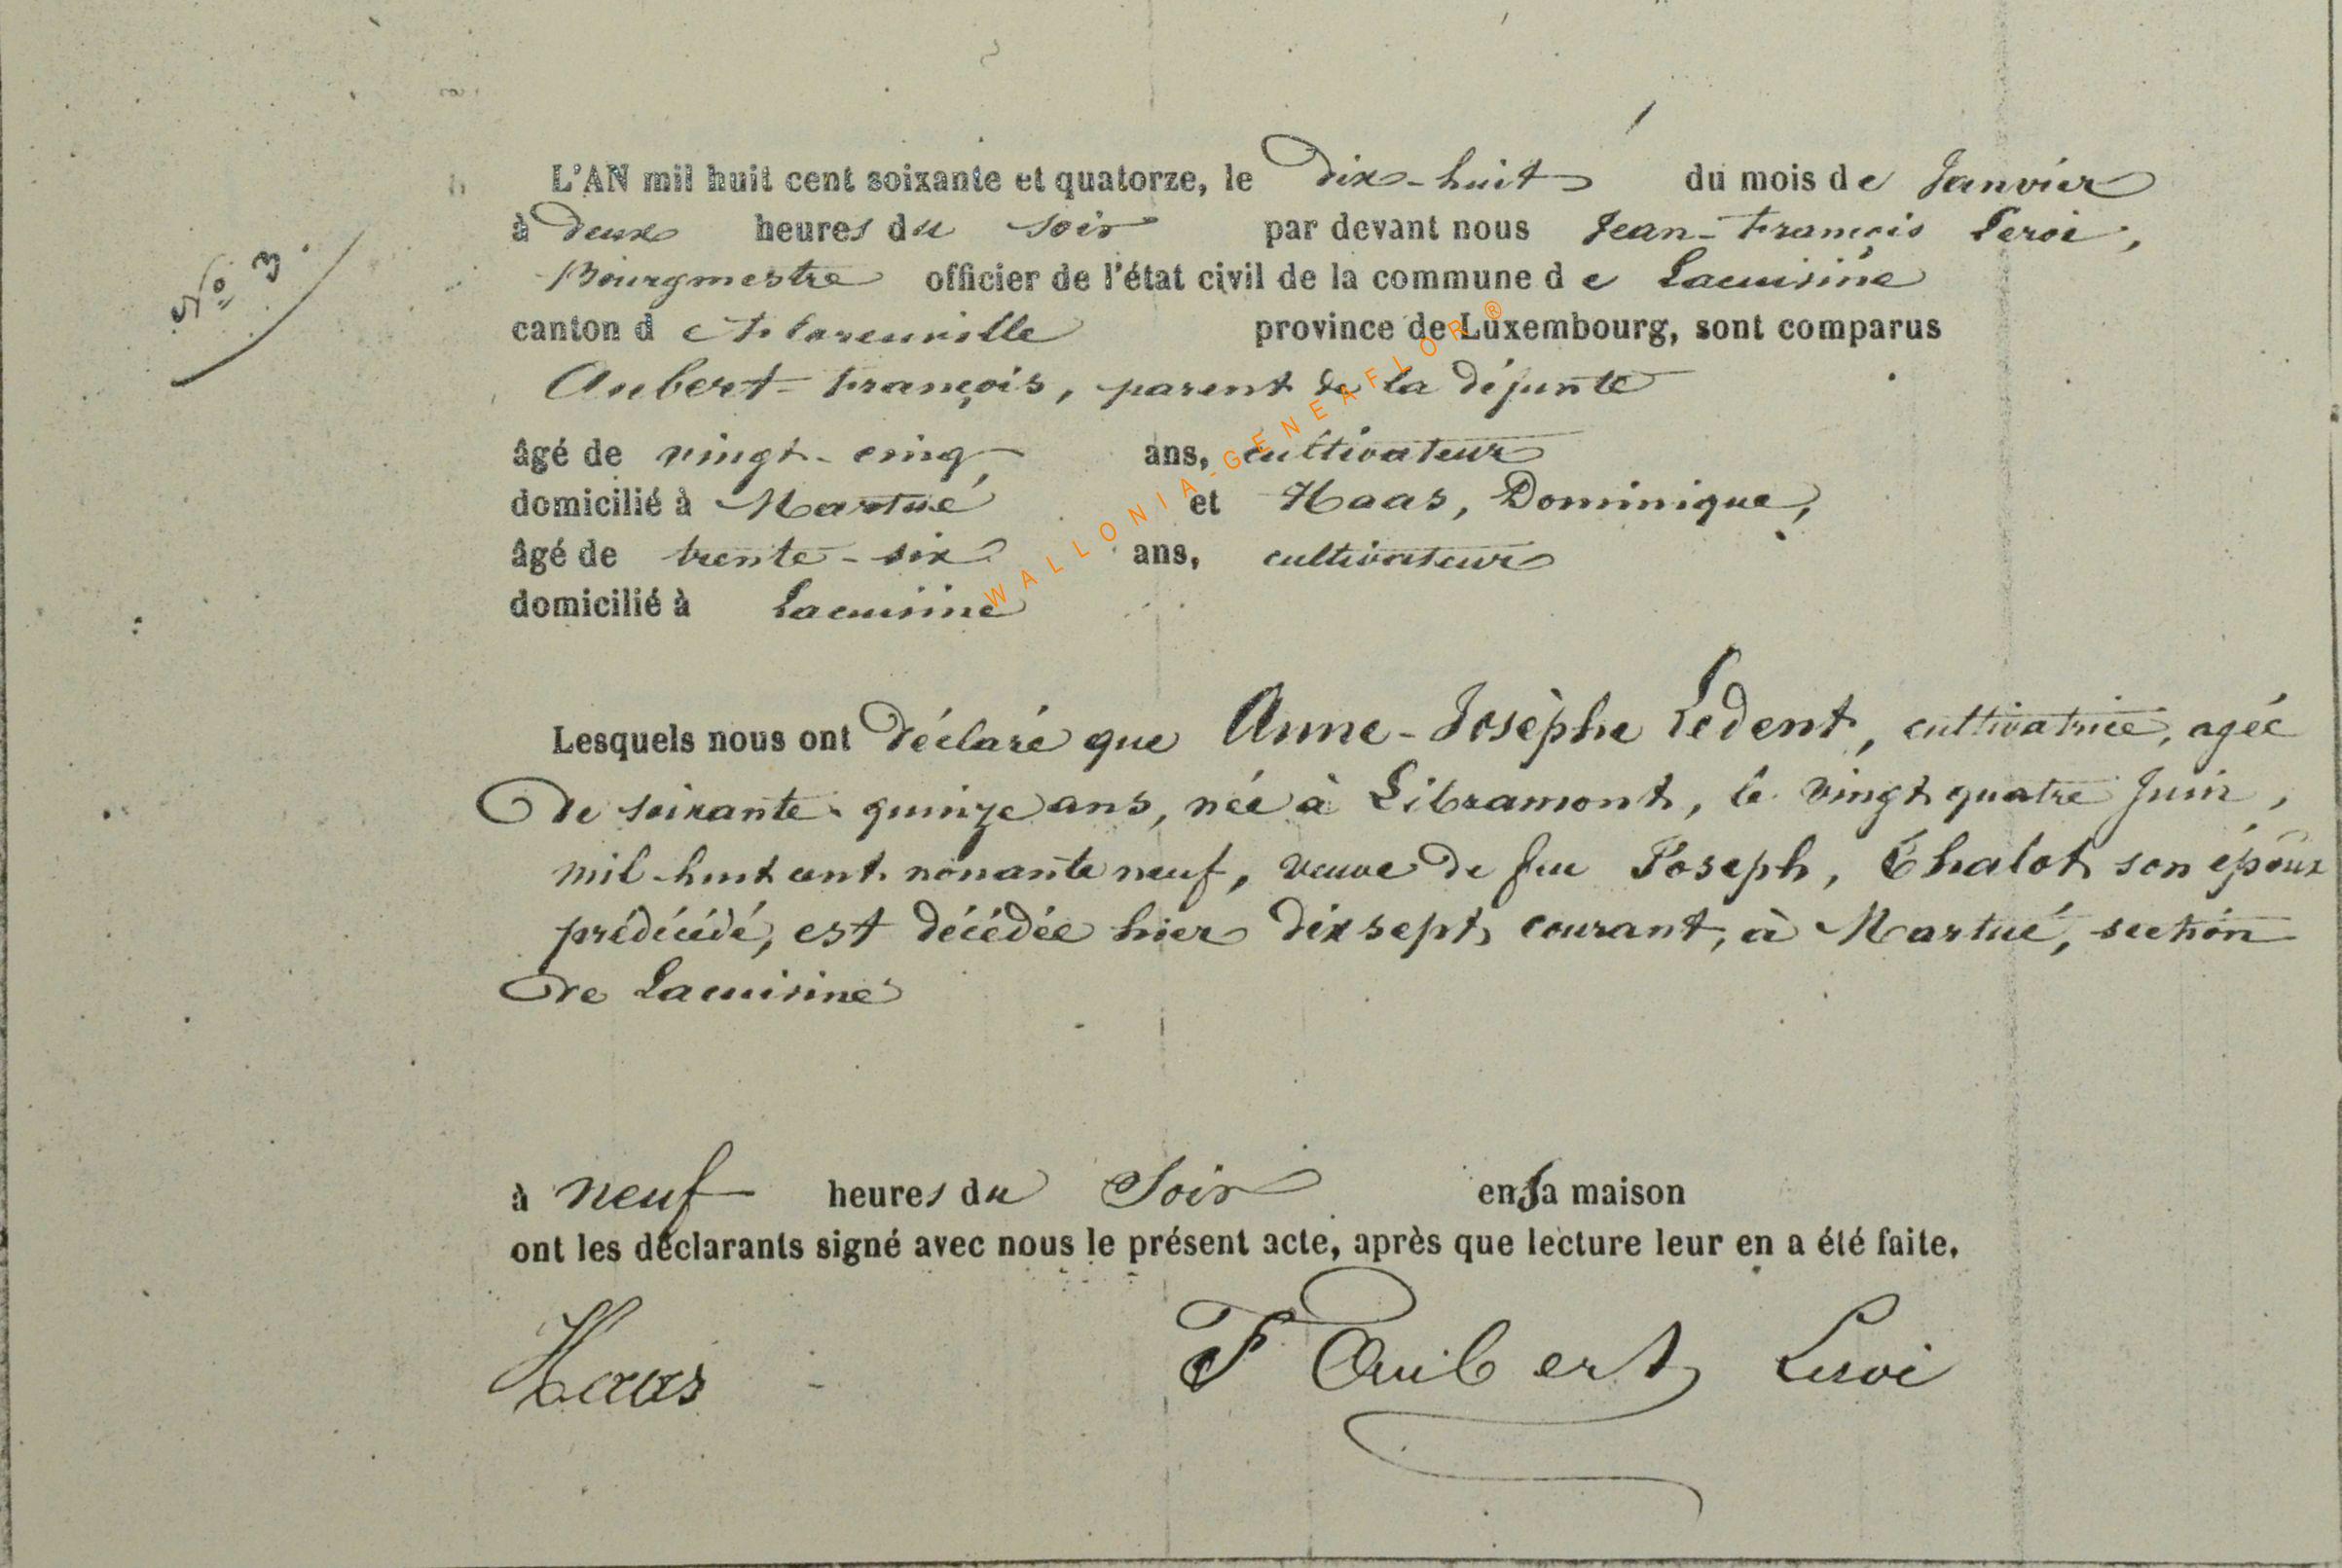 N° 3.
L'AN mil huit cent soixante et quatorze, le dix-huit du mois de Janvier
à deux heures du soir par devant nous Jean-François Leroi,
Bourgmestre officier de l'état civil de la commune de Lacuisine
canton d province de Luxembourg, sont comparus
Aubert-François, parent de la défunte
âgé de vingt-cinq ans, cultivateur
domicilié à Martué et Haas, Dominique,
âgé de trente-six ans, cultivateur
domicilié à Lacuisine
WALLONIA-GENEAFLOR®
Lesquels nous ont déclaré que Anne-Josèphe Ledent, cultivatrice, agée
de soixante-quinze ans, née à Libramont, le vingt quatre Juin,
mil-huit cent nonante neuf, veuve de feu Joseph, Chalot son époux
prédécédé, est décédée hier dix sept courant, à Martué, section
de Lacuisine
à neuf heures du Soir en sa maison
ont les déclarants signé avec nous le présent acte, après que lecture leur en a été faite.
Haas F Auibert Leroi